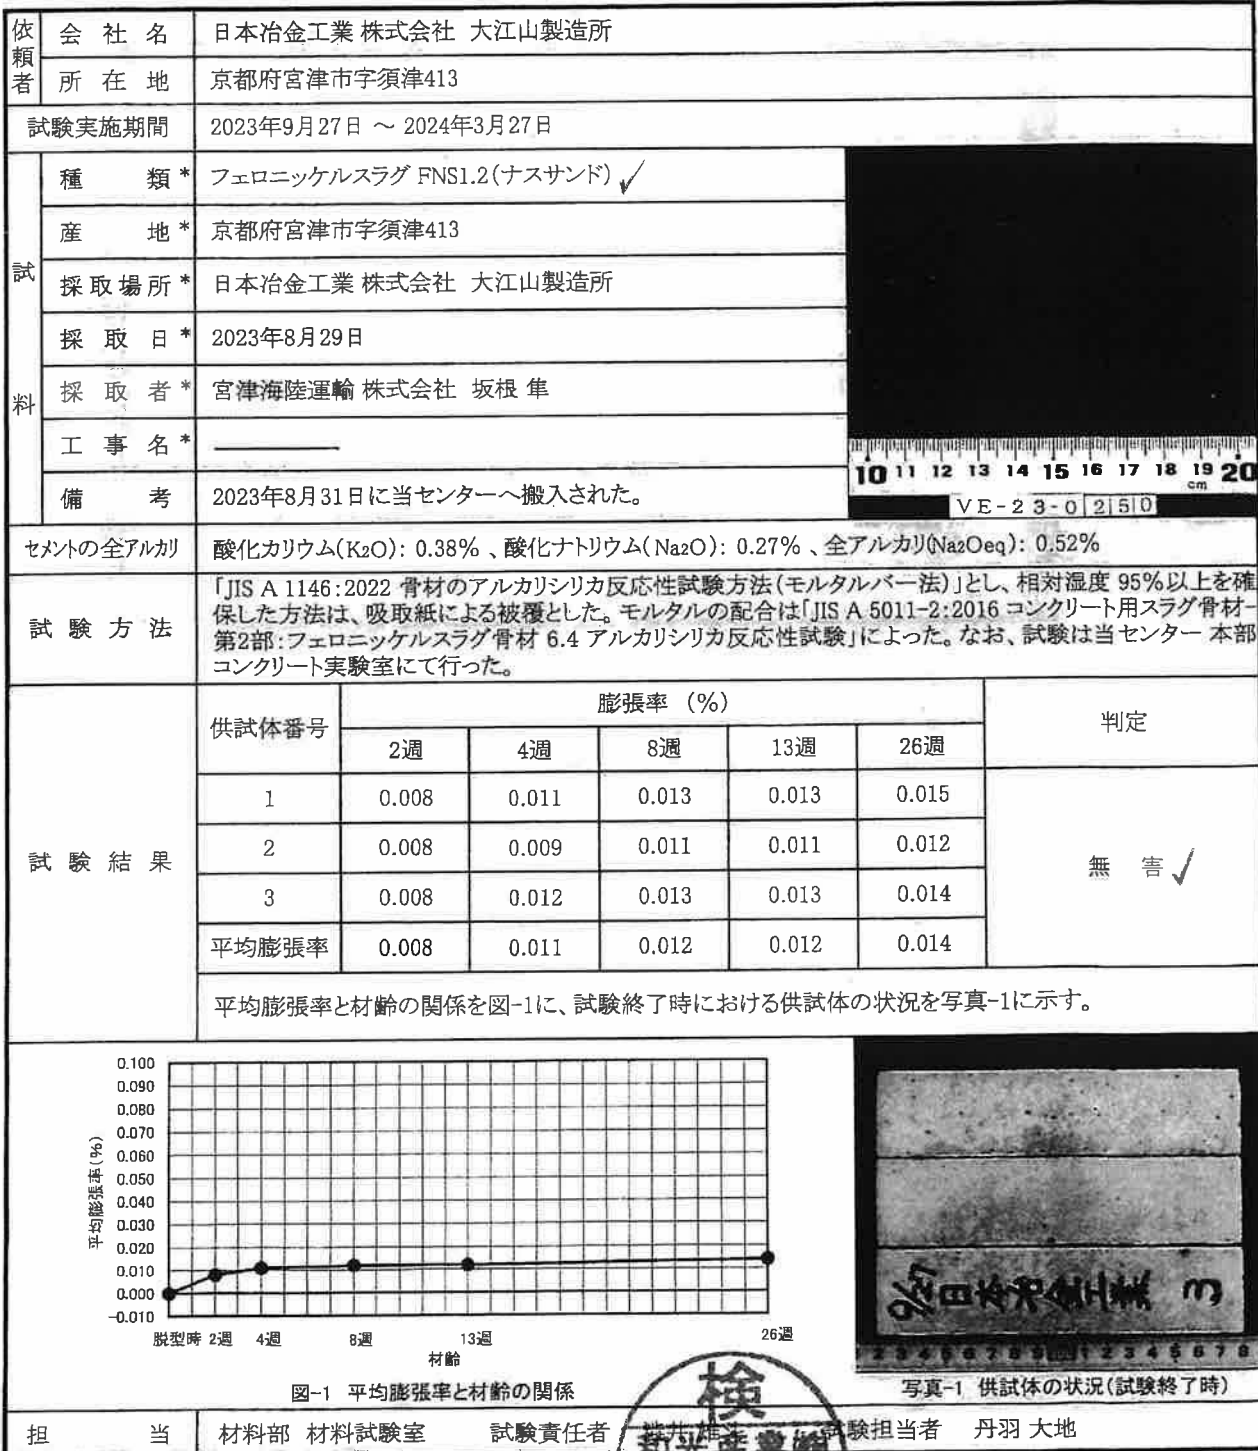 依頼者
会社名 日本冶金工業 株式会社 大江山製造所
所在地 京都府宮津市字須津413
試験実施期間 2023年9月27日 ～ 2024年3月27日
試料
種類* フェロニッケルスラグ FNS1.2(ナスサンド) ✓
産地* 京都府宮津市字須津413
採取場所* 日本冶金工業 株式会社 大江山製造所
採取日* 2023年8月29日
採取者* 宮津海陸運輸 株式会社 坂根 隼
工事名*
備考 2023年8月31日に当センターへ搬入された。
10 11 12 13 14 15 16 17 18 19 20
cm
VE-23-0250
セメントの全アルカリ 酸化カリウム(K₂O): 0.38% 、酸化ナトリウム(Na₂O): 0.27% 、全アルカリ(Na₂Oeq): 0.52%
試験方法
「JIS A 1146:2022 骨材のアルカリシリカ反応性試験方法(モルタルバー法)」とし、相対湿度 95%以上を確
保した方法は、吸取紙による被覆とした。モルタルの配合は「JIS A 5011-2:2016 コンクリート用スラグ骨材-
第2部:フェロニッケルスラグ骨材 6.4 アルカリシリカ反応性試験」によった。なお、試験は当センター 本部
コンクリート実験室にて行った。
試験結果
供試体番号 膨張率 (%) 判定
2週 4週 8週 13週 26週
1 0.008 0.011 0.013 0.013 0.015
2 0.008 0.009 0.011 0.011 0.012
無害 ✓
3 0.008 0.012 0.013 0.013 0.014
平均膨張率 0.008 0.011 0.012 0.012 0.014
平均膨張率と材齢の関係を図-1に、試験終了時における供試体の状況を写真-1に示す。
平均膨張率(%)
0.100
0.090
0.080
0.070
0.060
0.050
0.040
0.030
0.020
0.010
0.000
-0.010
脱型時 2週 4週 8週 13週 26週
材齢
図-1 平均膨張率と材齢の関係
9/27 日本冶金工業 3
2 3 4 5 6 7 8 9 1 2 3 4 5 6 7 8
写真-1 供試体の状況(試験終了時)
検
担当 材料部 材料試験室 試験責任者 試験担当者 丹羽 大地